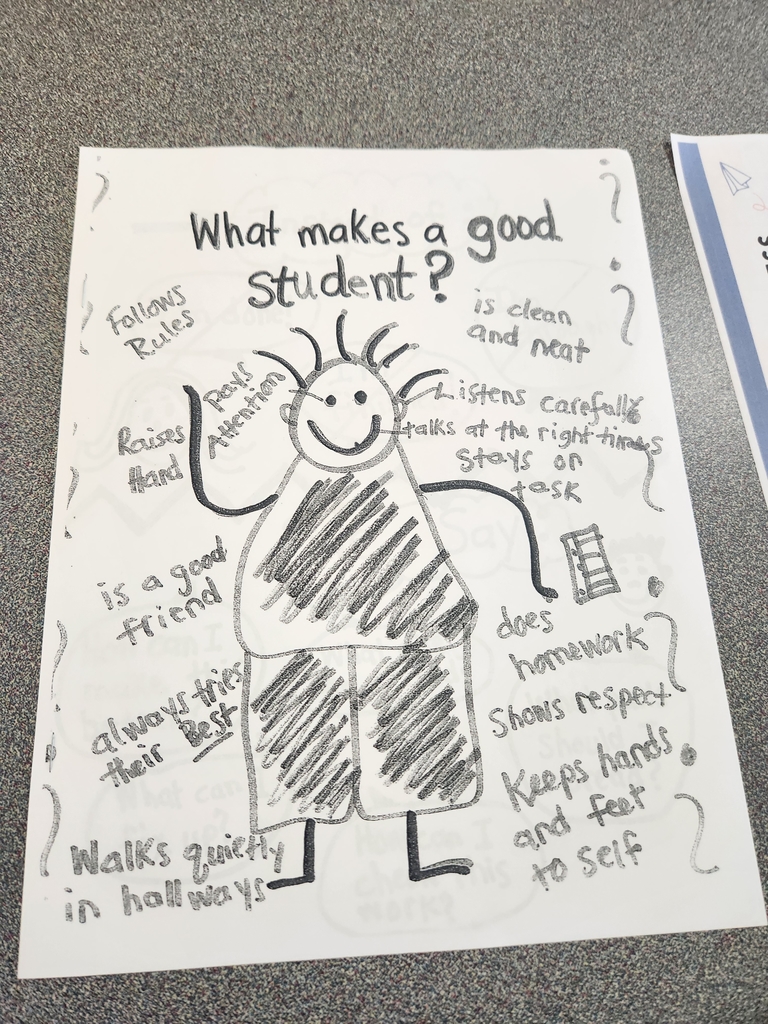 What makes a good
student?
Follows
Rules
is clean
and neat
Pays
Attention
Raises
Hand
Listens carefully
talks at the right times
stays on
task
is a good
friend
does
homework
always tries
their Best
Shows respect
Keeps hands
and feet
to self
Walks quietly
in hallways